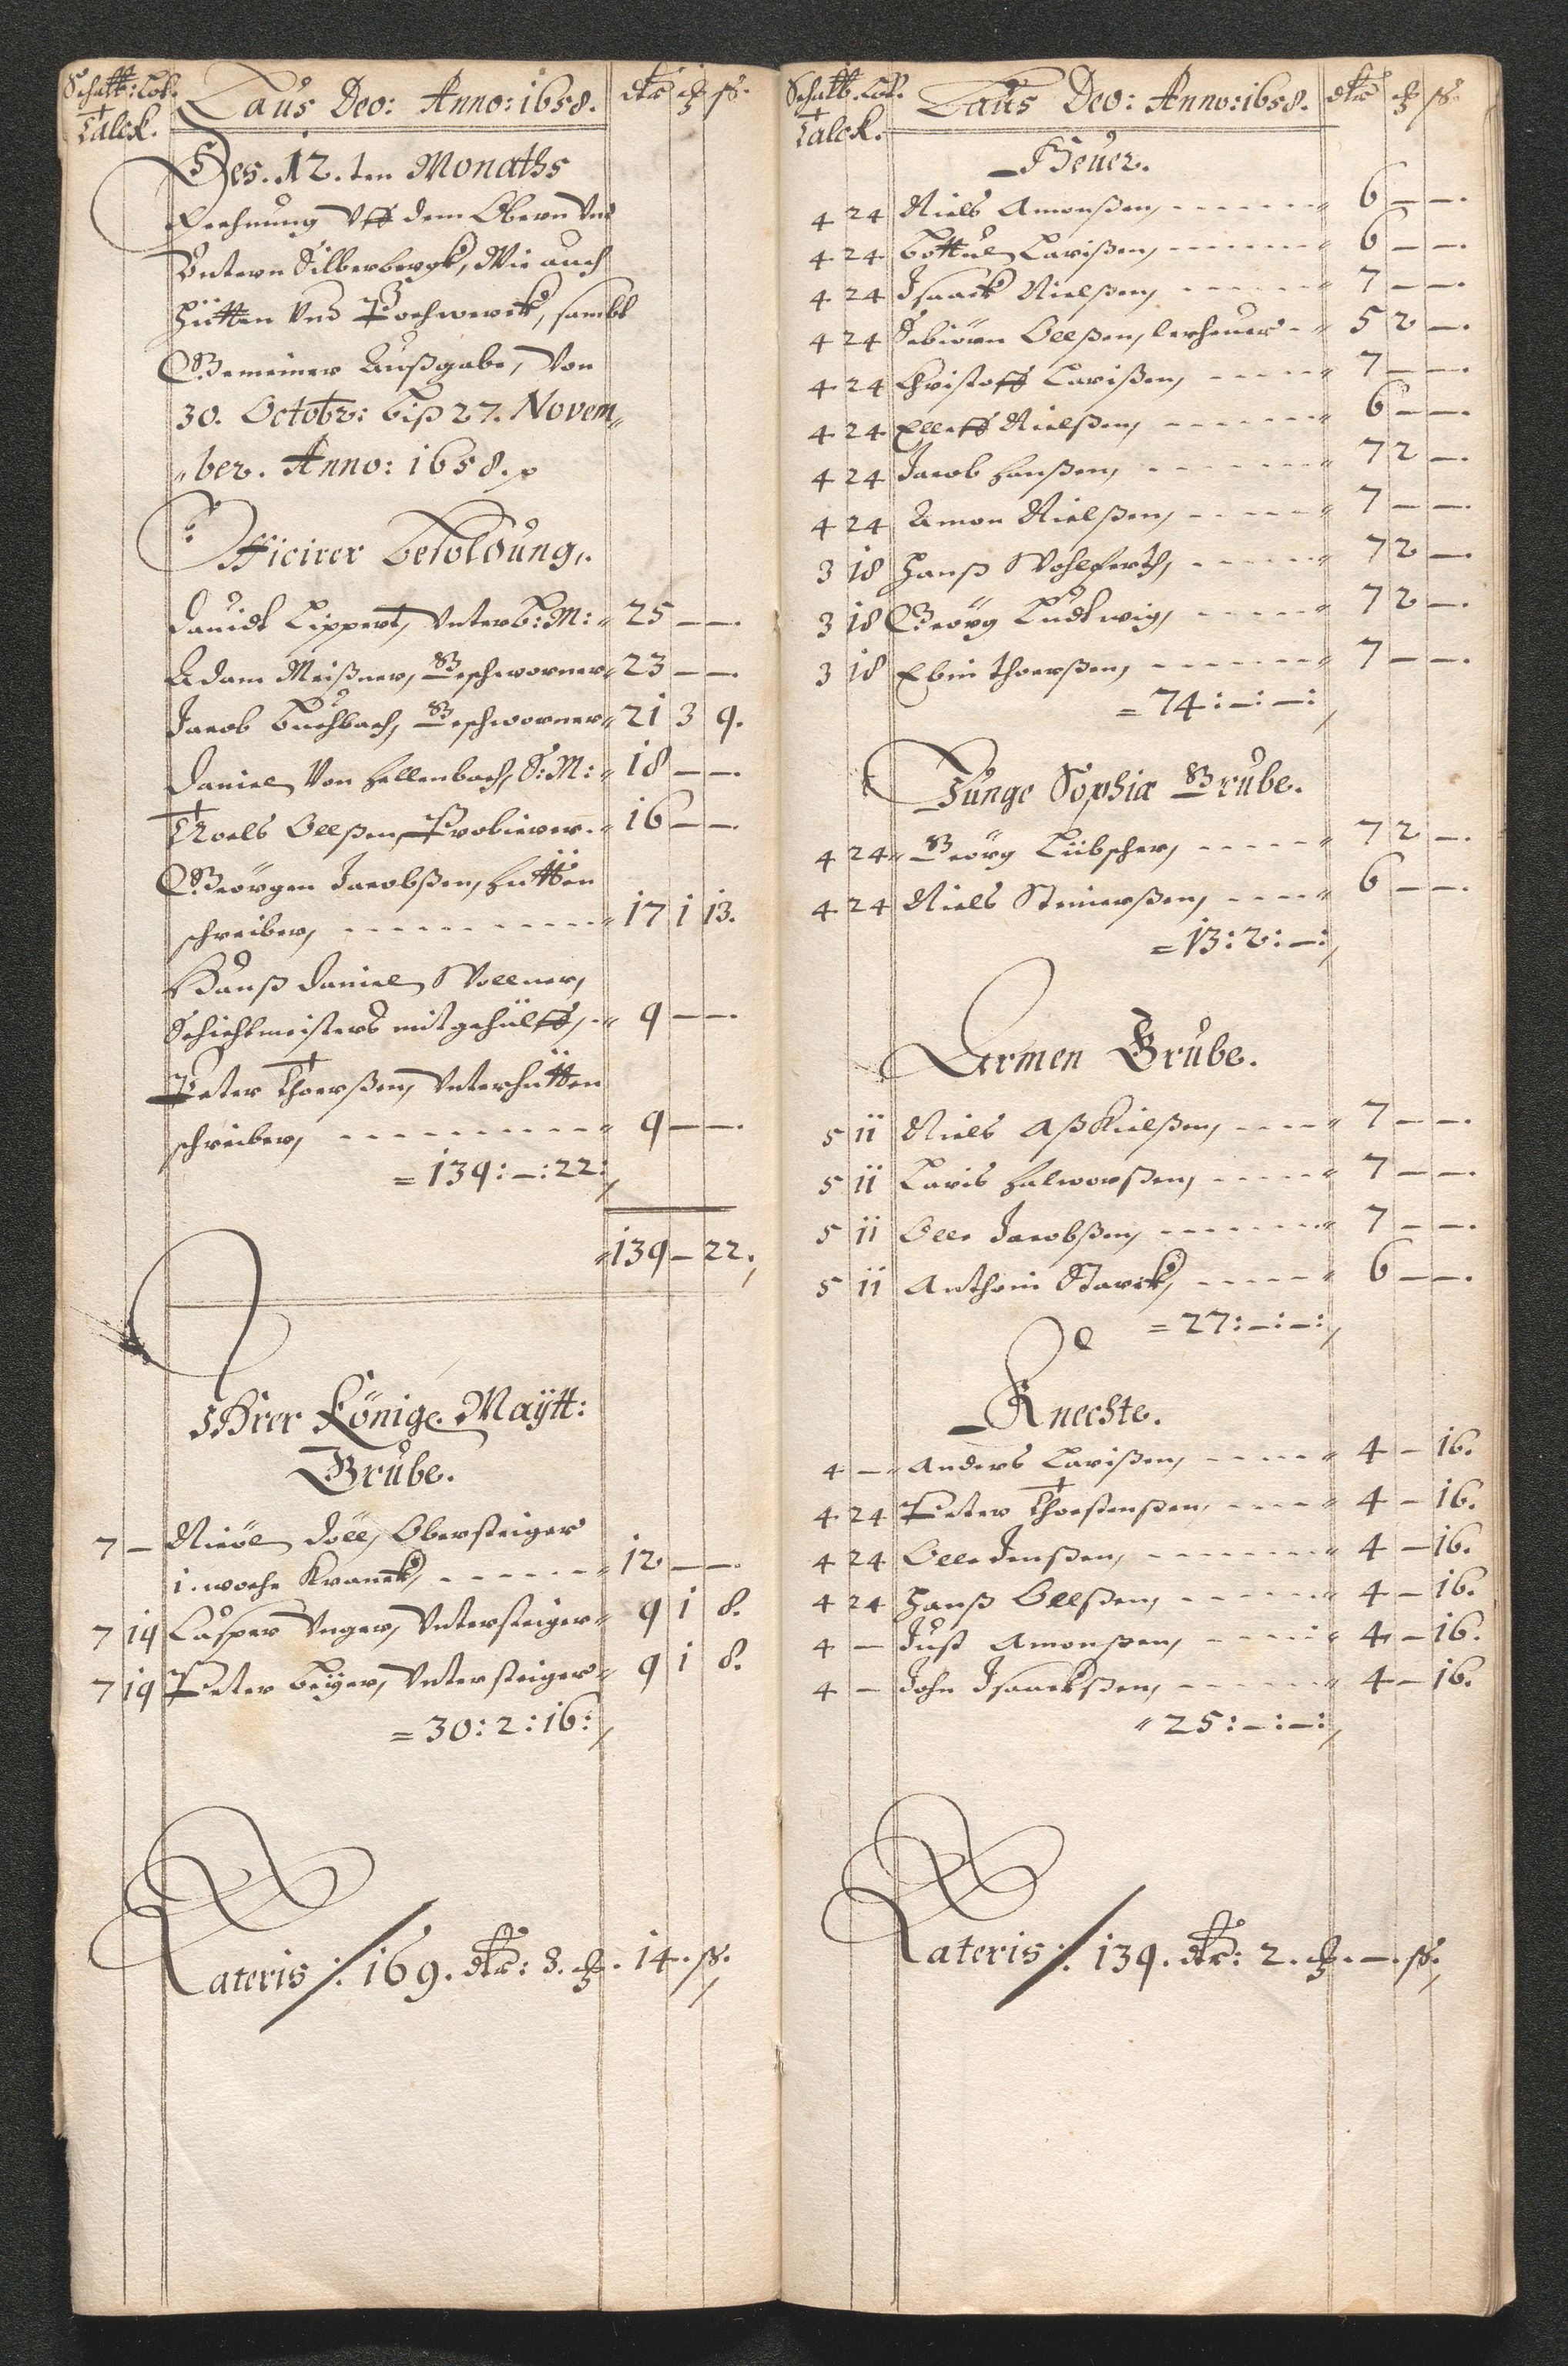 Schatt: Lot.
Talck.
Laus Deo: Anno: 1658.
dlr
Des. 12. ten Monaths
Rechnung Vff dem Obern Vnd
Vntern Silberbergk, Wie auch
Hütten Vnd Pochwerck, sambt
Gemeiner Außgabe, Von
30. Octobr: biß 27. Novem„
„ber. Anno: 1658.
Officirer besoldung.
Dauidt Lippert, Vnterb: M: 25 — —.
Adam Meißner, Geschworner 23 — —.
Jacob Buchbach, Geschworner 21 3 9.
Daniel Von Hellenbach, S: M: 18 — —.
Troels Olleßen, Probierer. 16 — —.
Geörgen Jacobßen, Hütten
schreiber, 17 1 13.
Hanß Daniel Wollner,
Schichtmeisters mitgehülff, 9 — —.
Peter Thorßen, Vnterhütten
schreiber, 9 — —.
= 139: —: 22:
139 — 22.
Ihrer Könige. Maÿtt:
Grube.
7 — Nicöl Döll, Obersteiger
1. woche Kranck, 12 — —.
7 19 Casper Vnger, Vntersteiger 9 1 8.
7 19 Peter Beÿer, Vntersteiger 9 1 8.
= 30: 2: 16:
Lateris: 169. dlr: 3. 14. ß.
Schatt. Lot.
Talck.
Laus Deo: Anno: 1658.
dlr
Heuer.
4 24 Niels Amonßen, 6 — —.
4 24 Bottul Larißen, 6 — —.
4 24 Isaack Nielßen, 7 — —.
4 24 Sebiörn Olleßen, lerheuer 5 2 —.
4 24 Christoff Larißen, 7 — —.
4 24 Elleff Nielßen, 6 — —.
4 24 Jacob Hanßen, 7 2 —.
4 24 Amon Nielßen, 7 — —.
3 18 Hanß Wohlfarth, 7 2 —.
3 18 Geörg Ludtwig, 7 2 —.
3 18 Ebin Thorßen, 7 — —.
= 74: —: —:
Junge Sophia Grube.
4 24 Geörg Lübscher, 7 2 —.
4 24 Niels Steinerßen, 6 — —.
= 13: 2: —:
Armen Grube.
5 11 Niels Aßkielßen, 7 — —.
5 11 Laris Halworßen, 7 — —.
5 11 Olle Jacobßen, 7 — —.
5 11 Anthoni Starck, 6 — —.
= 27: —: —:
Knechte.
4 — Anders Larißen, 4 — 16.
4 24 Peter Thorstenßen, 4 — 16.
4 24 Olle Jenßen, 4 — 16.
4 24 Hanß Olleßen, 4 — 16.
4 — Just Amonßen, 4 — 16.
4 — John Isaackßen, 4 — 16.
25: —: —:
Lateris: 139. dlr: 2. —. ß.